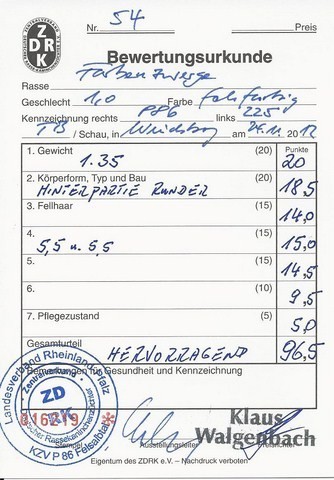 ZENTRALVERBAND
ZDRK
Nr. 54 Preis
Bewertungsurkunde
Farbenzwerge
Rasse
Geschlecht 1,0 Farbe fehfarbig
Kennzeichnung rechts P86 links 225
/ Schau, in am 24.11. 2012
Punkte
1. Gewicht (20) 20
1.35
2. Körperform, Typ und Bau (20) 18,5
HINTERPARTIE RUNDER
3. Fellhaar (15) 14,0
4. (15) 15,0
5,5 u. 5,5
5. (15) 14,5
6. (10) 9,5
7. Pflegezustand (5) 5,0
Gesamturteil HERVORRAGEND 96,5
Bemerkungen für Gesundheit und Kennzeichnung
Landesverband Rheinland-Pfalz
Zentralverband
ZD
RK
016219
KZV P 86 Felsalbtal
Klaus
Walgenbach
Stempel Ausstellungsleiter Preisrichter
Eigentum des ZDRK e.V. – Nachdruck verboten